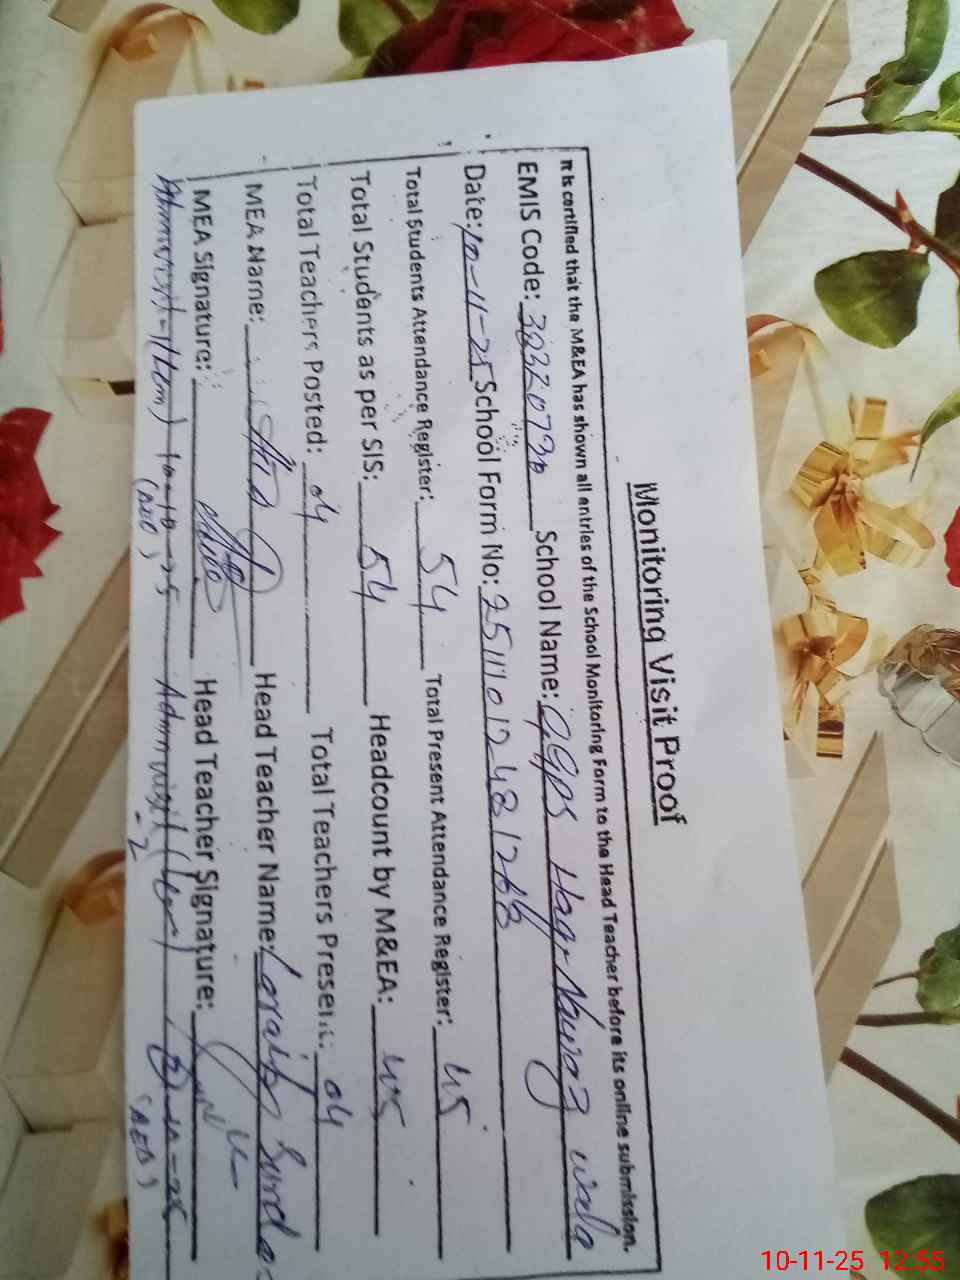 Monitoring Visit Proof
It is certified that the M&EA has shown all entries of the School Monitoring Form to the Head Teacher before its online submission.
EMIS Code: 38320730 School Name: GGPS Haq Nawaz wala
Date: 10-11-25 School Form No: 25111012481268
Total Students Attendance Register: 54 Total Present Attendance Register: 45
Total Students as per SIS: 54 Headcount by M&EA: 45
Total Teachers Posted: 04 Total Teachers Present: 04
MEA Name: Head Teacher Name: Sundas
MEA Signature: Head Teacher Signature:
(AEO) -2 (AEO)
10-11-25 12:55